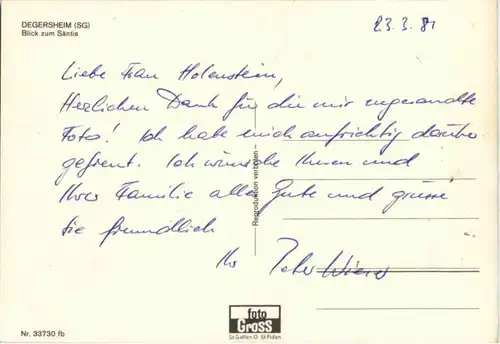 DEGERSHEIM (SG)
Blick zum Säntis
23.3.81
Liebe Frau Holenstein,
Herzlichen Dank für die mir zugesandte
Foto! Ich habe mich aufrichtig darüber
gefreut. Ich wünsche Ihnen und
Ihrer Familie alles Gute und grüsse
Sie freundlich
Ihr Peter Wiesw
Reproduktion verboten
foto
Gross
St.Gallen O St.Fiden
Nr. 33730 fb